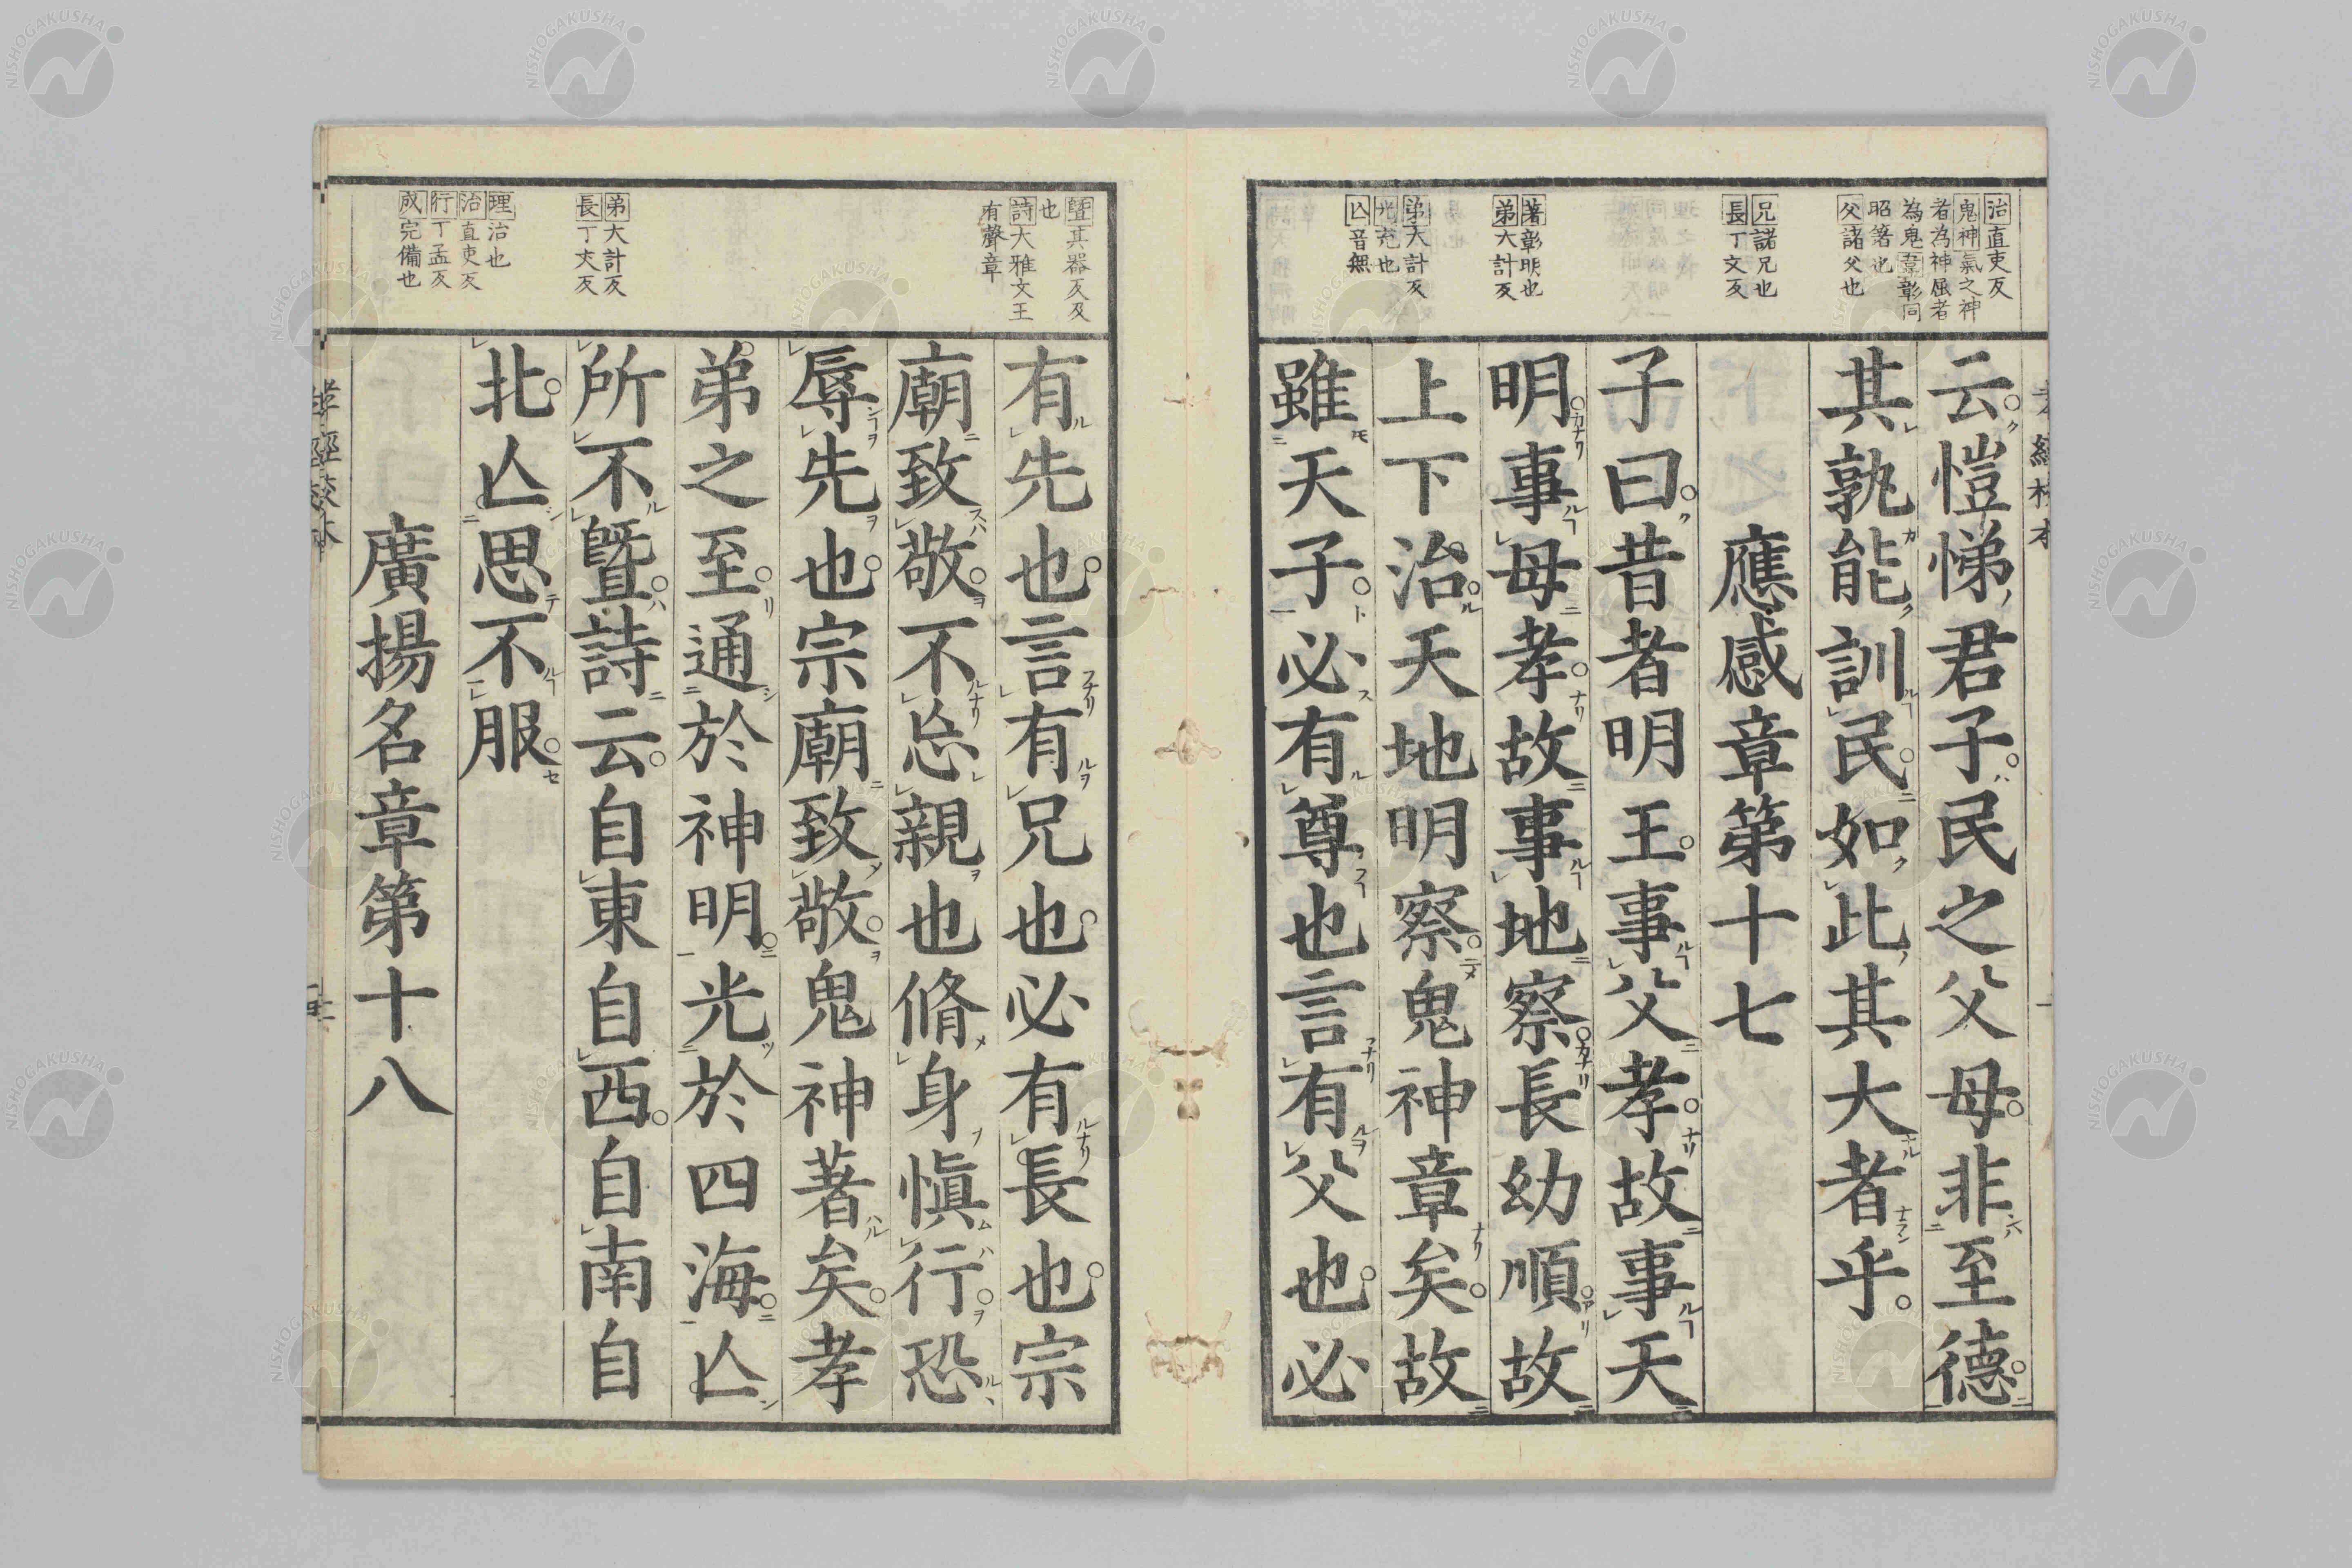 治直吏反
鬼神氣之神
者為神屈者
為鬼章彰同
昭著也
父諸父也
兄諸兄也
長丁丈反
著彰明也
弟大計反
弟大計反
光充也
亾音無
云愷悌君子民之父母非至德
其孰能訓民如此其大者乎
應感章第十七
子曰昔者明王事父孝故事天
明事母孝故事地察長幼順故
上下治天地明察鬼神章矣故
雖天子必有尊也言有父也必
曁其器反及
也
詩大雅文王
有聲章
弟大計反
長丁丈反
理治也
治直吏反
行丁孟反
成完備也
有先也言有兄也必有長也宗
廟致敬不忘親也脩身愼行恐
辱先也宗廟致敬鬼神著矣孝
弟之至通於神明光於四海亾
所不曁詩云自東自西自南自
北亾思不服
廣揚名章第十八
NISHOGAKUSHA